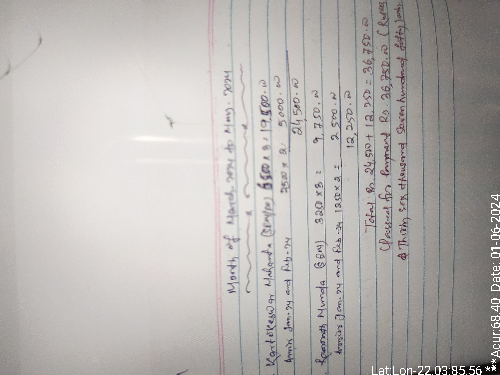 Month of March 2024 to May-2024
Kartikeswar Mahanta (SEM/PO) 6500 x 3 = 19,500.00
Arrear Jan-24 and Feb-24 2500 x 2 5000.00
24,500.00
Munda (GEM) 3250 x 3 = 9,750.00
Arrears Jan-24 and Feb-24 1250 x 2 = 2500.00
12,250.00
Total Rs 24,500 + 12,250 = 36,750.00
(Passed for Payment Rs. 36,750.00 (Rupees
Thirty six thousand seven hundred fifty) only.
Lat Lon-22.03,85.56 **
**Acur:68.40 Date: 01-06-2024